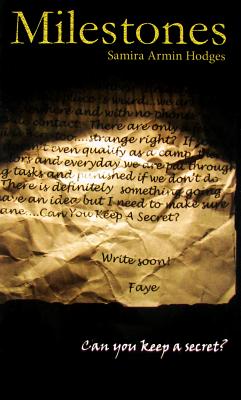 Milestones
Samira Armin Hodges
is wierd... we are
where and with no phones
contact. There are only
strange right? If
't even qualify as a camp, the
ors and everyday we are put through
g tasks and punished if we don't do
There is definitely something going
have an idea but I need to make sure
ane....Can You Keep A Secret?
Write soon!
Faye
Can you keep a secret?